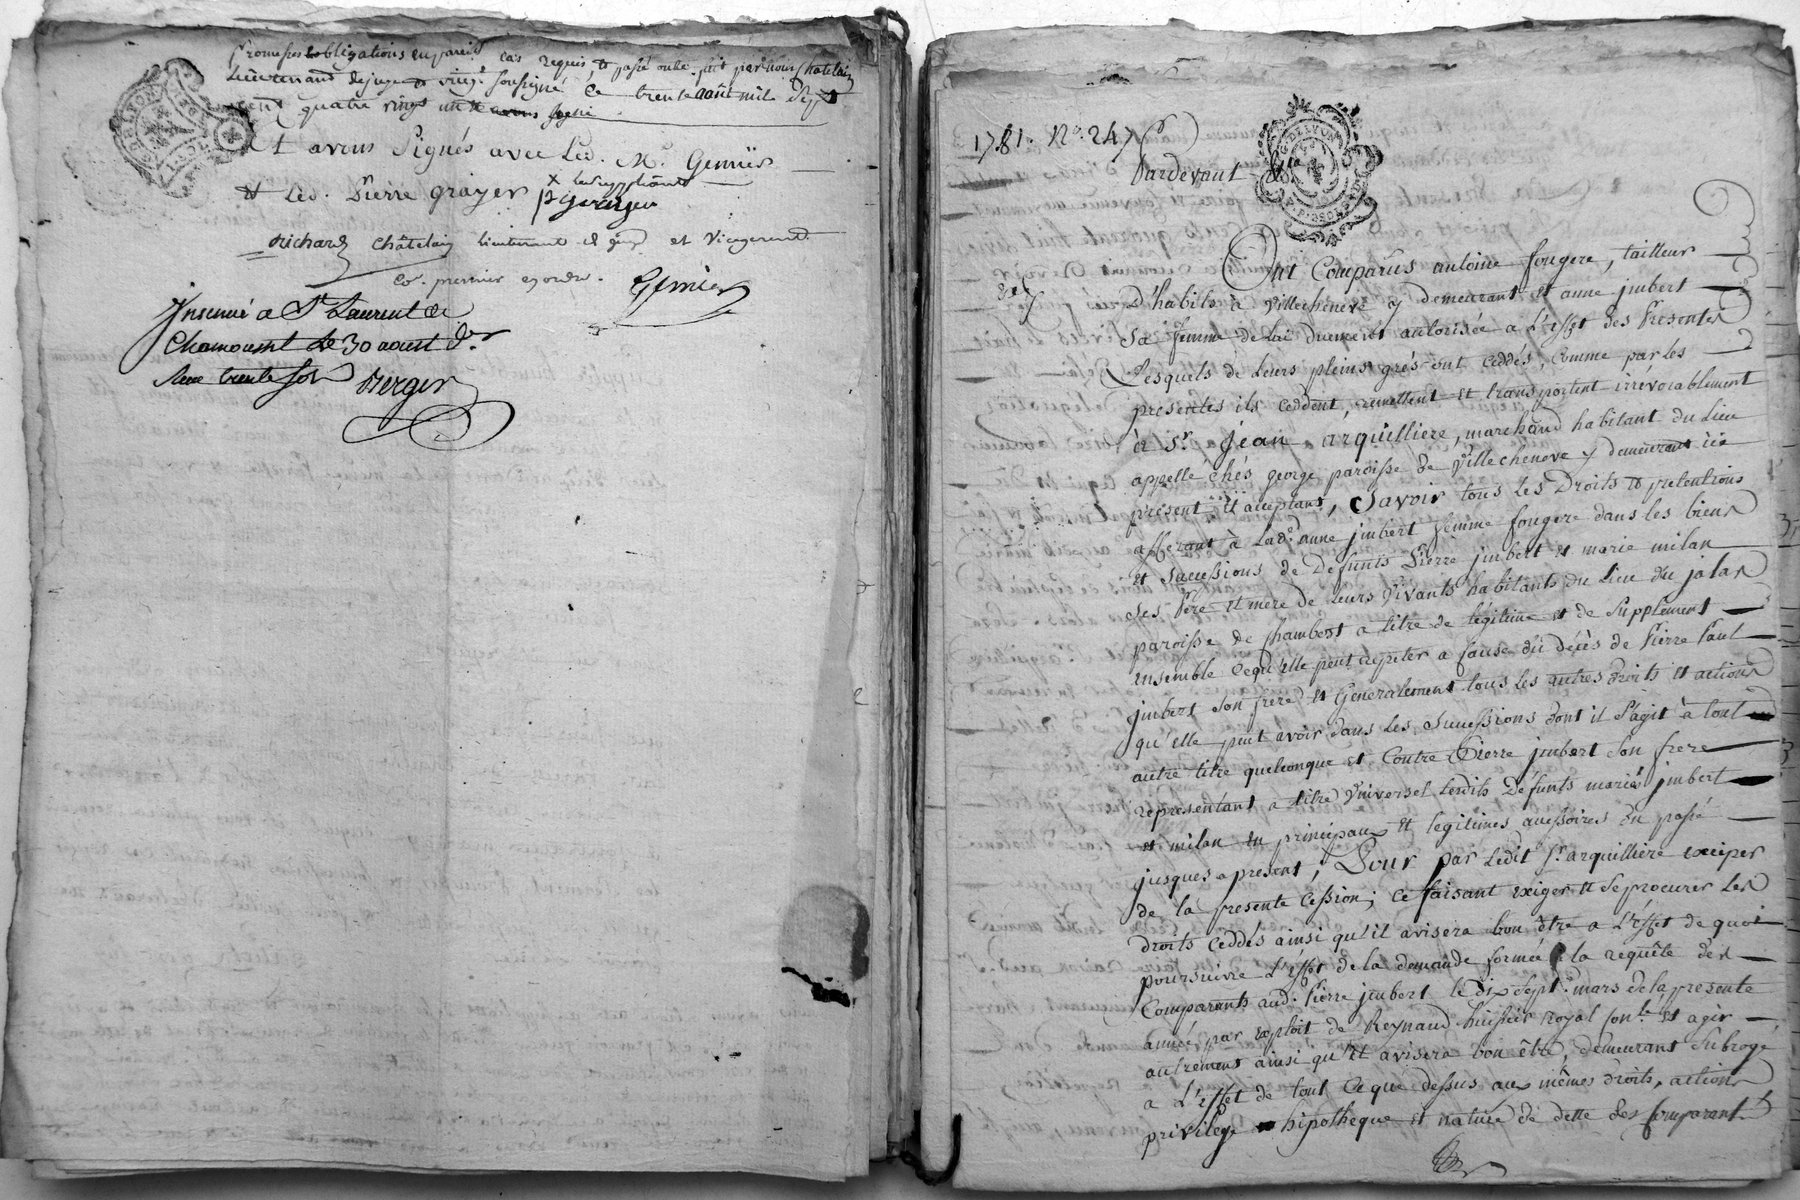 promesses obligations en pareil cas requis, et passé outre fait par nous Chatelain
Lieutenant de juge et vicegt soussigné Ce trente aoust mil sept
cent quatre vingt un
Et avons Signés avec Led. Me. Gemier
et Led. Pierre grayer
Richard Châtelain lieutenant de juge et Vicegerent
Gemier
Insinué a St Laurent de
Chamousset le 30 aoust
trente sols Berger
1781. No. 247
Pardevant
Ont Comparus antoine fougere, tailleur
D'habits à Villecheneve y demeurant et anne jmbert
Sa femme de lui duement autorisée a L'effet des Presentes
Lesquels de Leurs pleins grés ont ceddés, comme par les
presentes ils ceddent, remettent et transportent irrévocablement
à Sr. Jean arquilliere, marchand habitant du Lieu
appellé chés george paroisse de Villecheneve y demeurant icy
présent et acceptant, Savoir tous les Droits et pretentions
afferant à Lade. anne jmbert femme fougere dans les biens
et Successions de Defunts Pierre jmbert et marie milan
Ses Pere et mere de Leurs Vivants habitants du Lieu du jalas
paroisse de Chambost a titre de légitime et de Supplement
ensemble cequ'elle peut repeter a Cause du décès de Pierre Paul
jmbert Son frere et Generalement tous les autres droits et actions
qu'elle peut avoir dans Les Successions dont il S'agit à tout
autre titre quelconque et Contre Pierre jmbert Son frere
representant a titre Universel Lesdits Défunts mariés jmbert
et milan en principaux et legitimes accessoires du passé
jusques a present, Pour par Ledit Sr. arquilliere exciper
de la presente Cession; ce faisant exiger et Se procurer les
droits Ceddés ainsi qu'il avisera bon être a L'effet de quoi
poursuivre L'effet de la demande formée a la requête des
Comparants aud. Pierre jmbert le dix Sept mars de la presente
année par exploit de Reynaud huissier royal et agir
autrement ainsi qu'il avisera bon être, demeurant Subrogé
a L'effet de tout Ce que dessus aux mêmes droits, actions
privilege hipotheque et nature de dette des Comparants